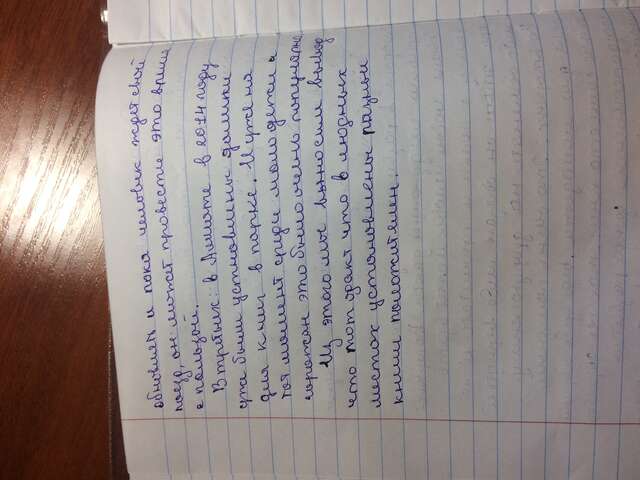 обновлять и пока человек ждет свой
поезд, он может провести это время
с пользой.
В третьих: в Алмате в 2014 году
уже были установлены домики
для книг в парке. И уже на
тот момент среди молодежи и
горожан это было очень популярно
Из этого мы выносим вывод
что тот факт что в людных
местах установлены разные
книги положителен.